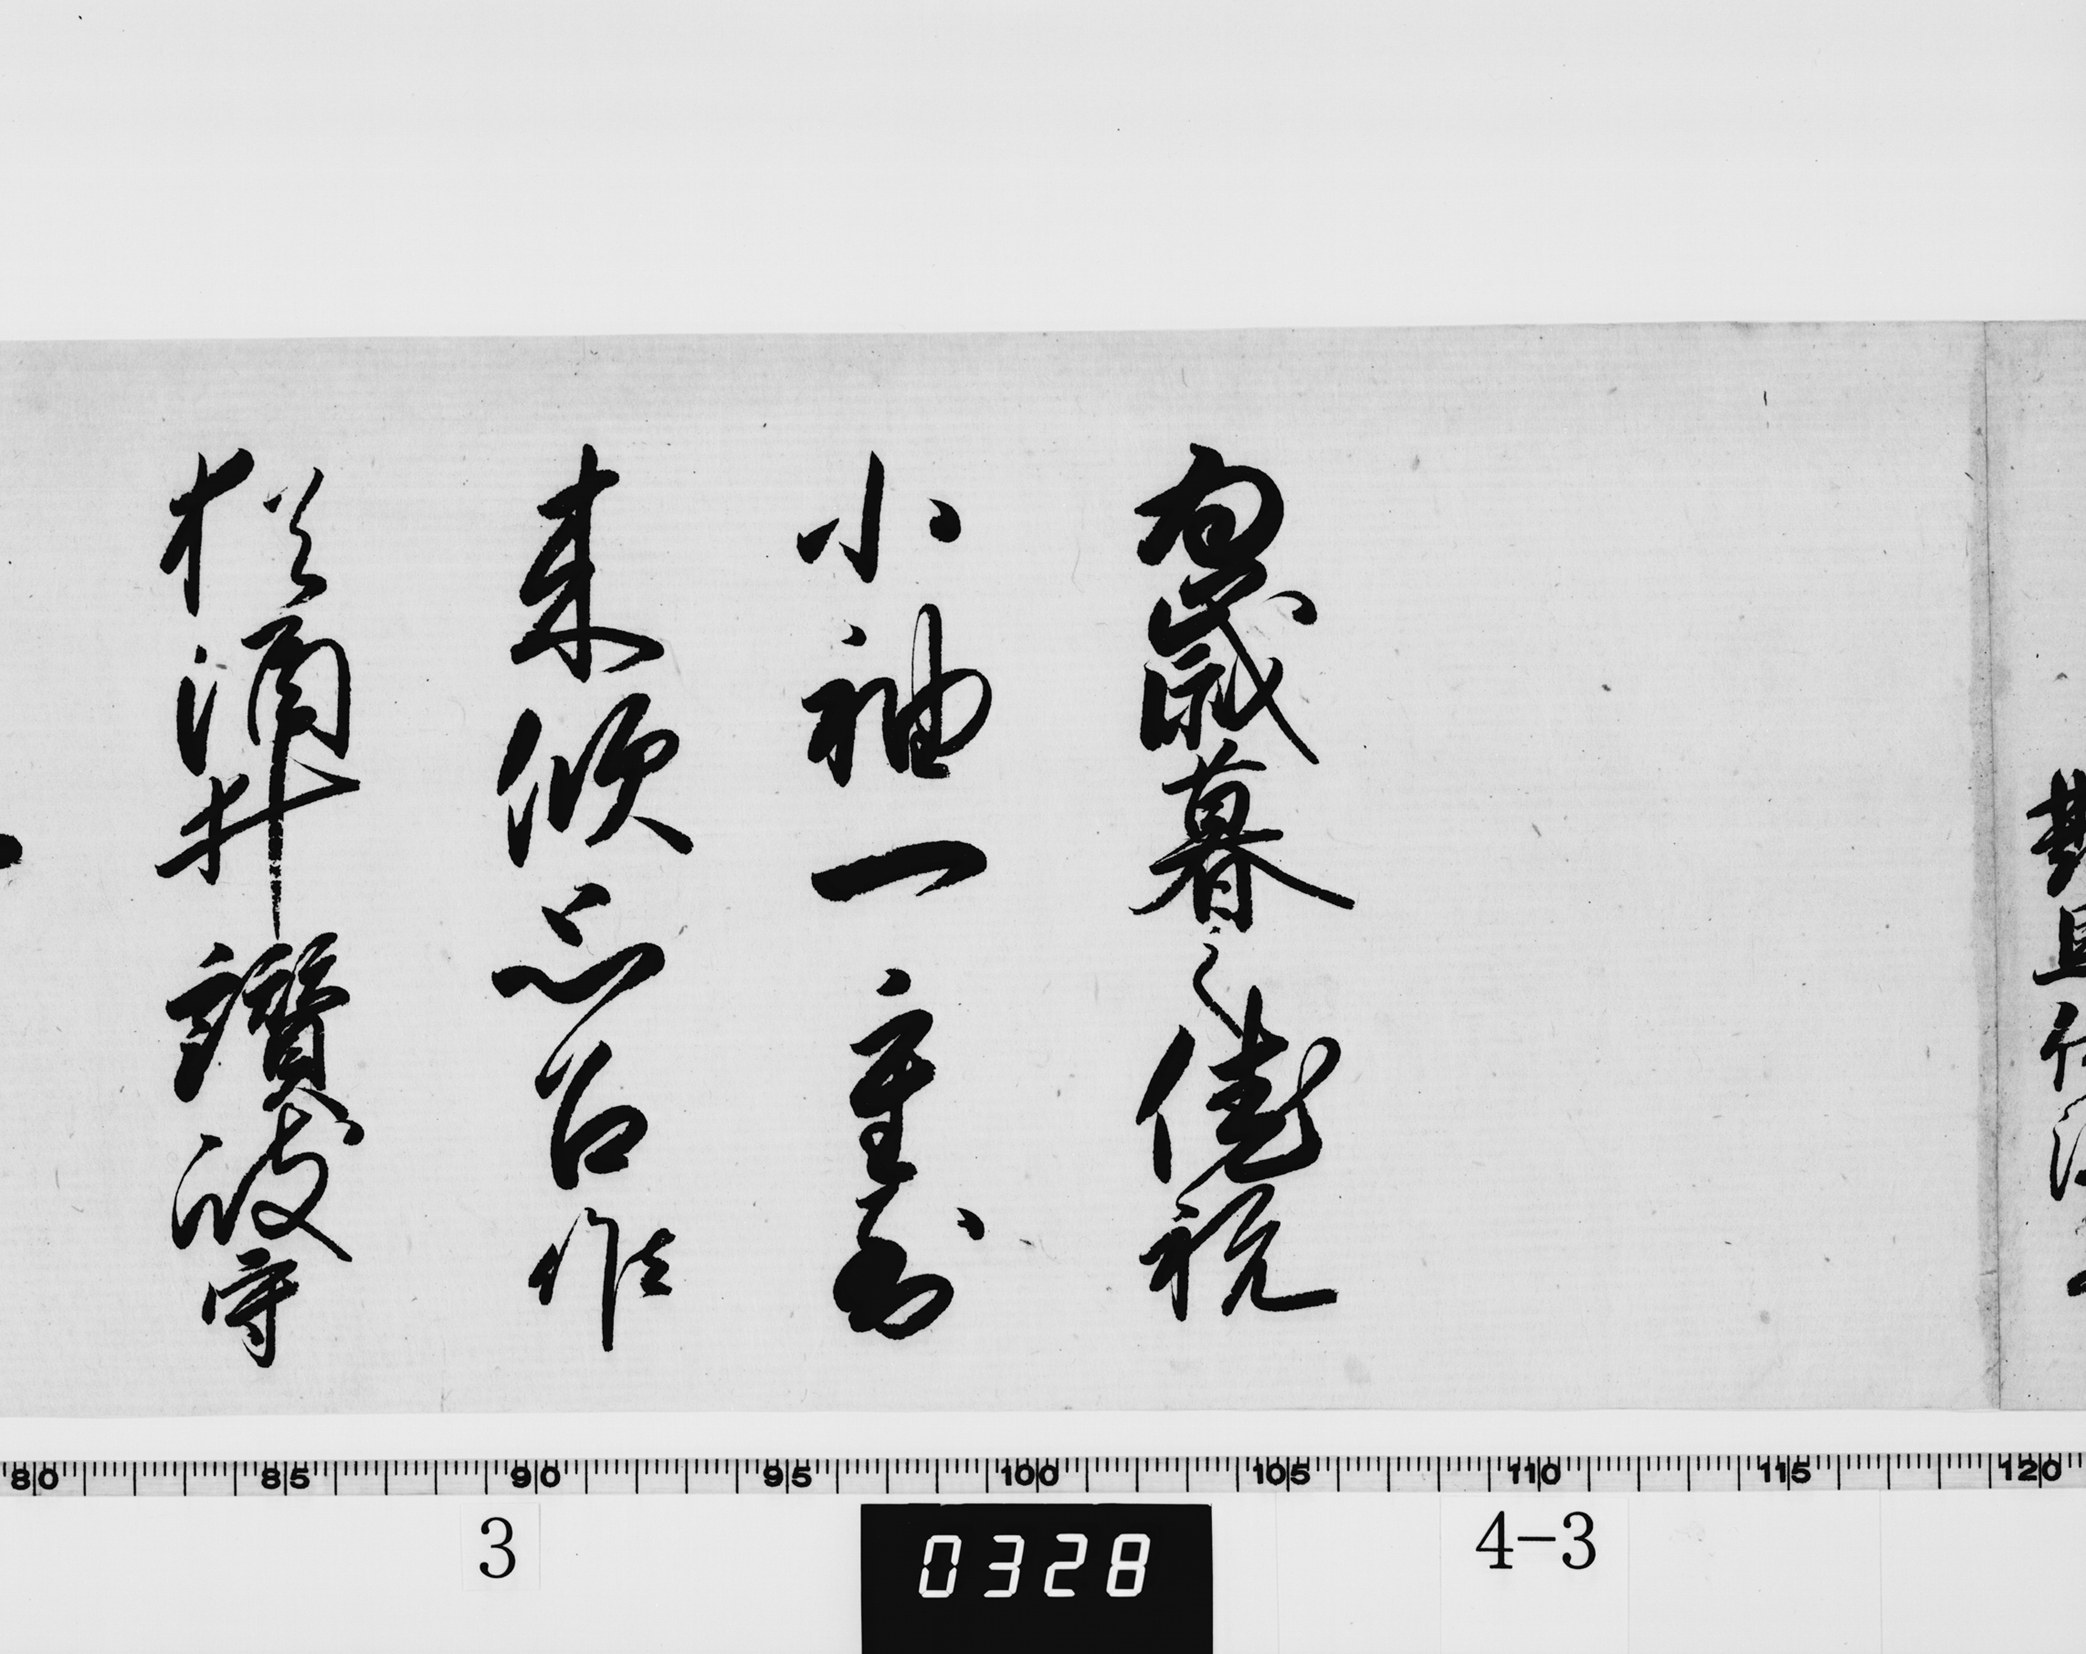 為歳暮之祝
小袖一重到
来思召候
猶酒井讃岐守
80 85 90 95 100 105 110 115 120
3 0328 4-3